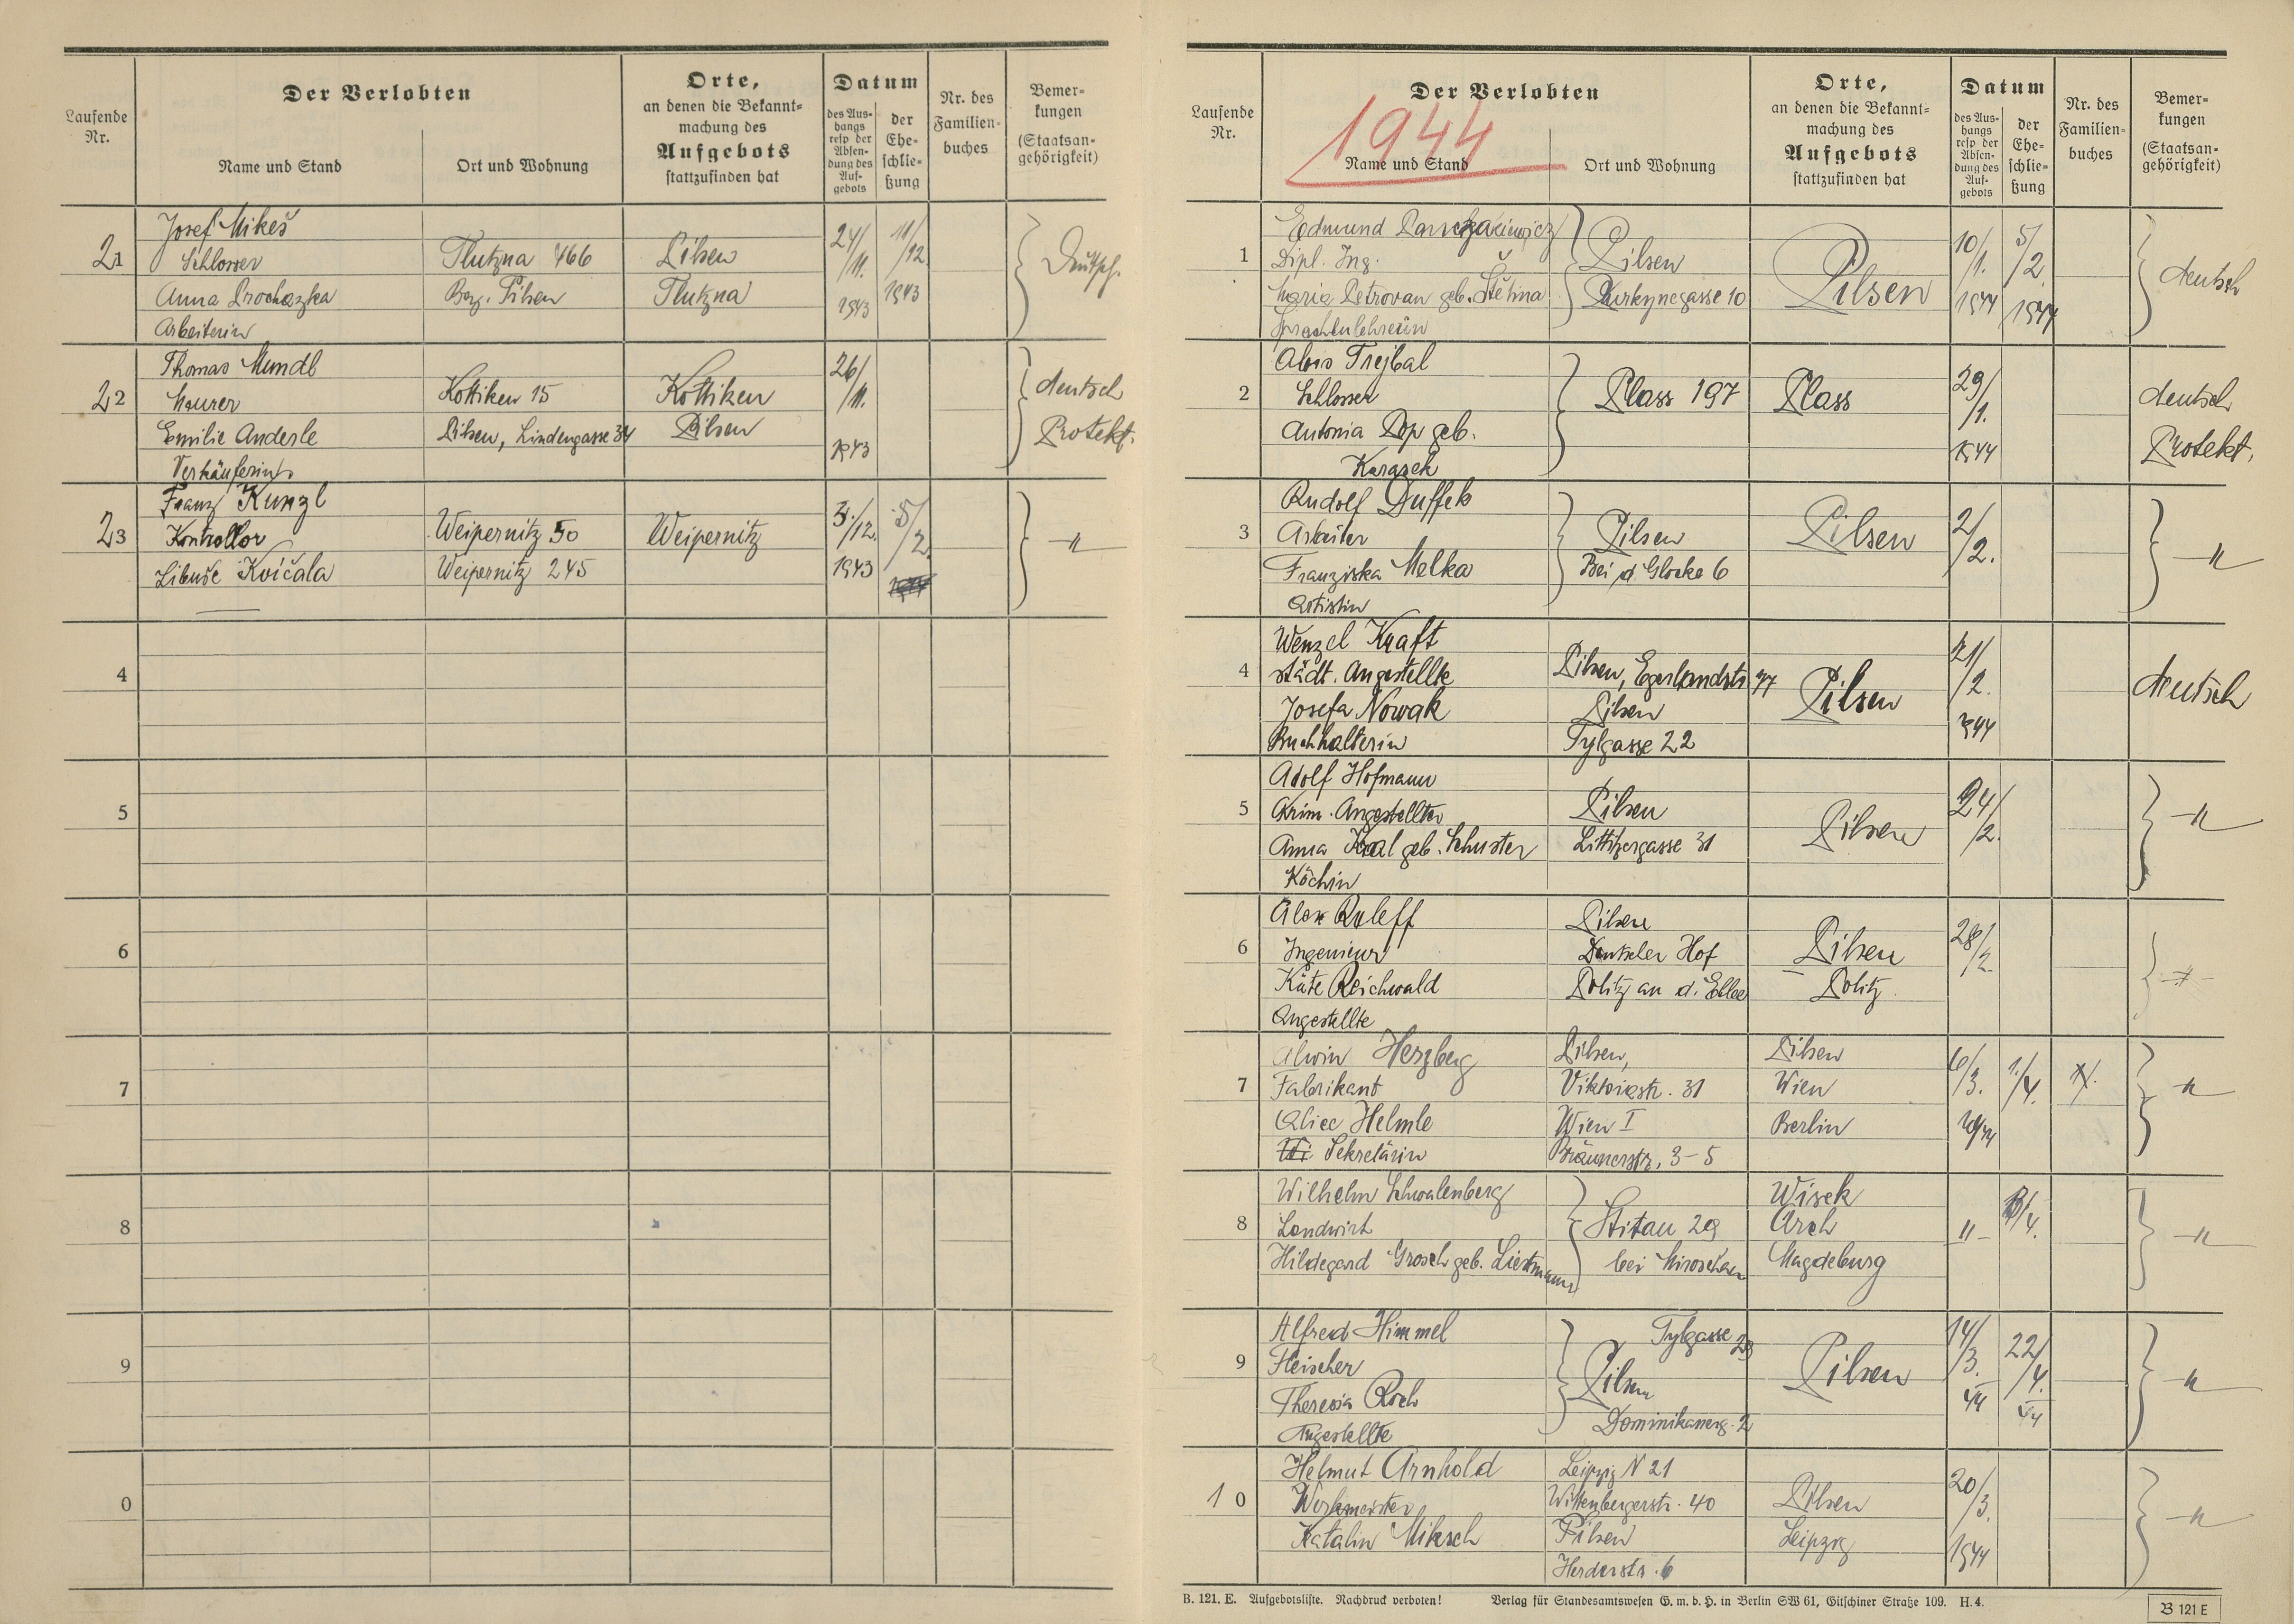 Laufende Nr.
Der Verlobten
Name und Stand
Ort und Wohnung
Orte, an denen die Bekannt-
machung des
Aufgebots
stattzufinden hat
Datum
des Aus-
hangs
resp der
Absen-
dung des
Auf-
gebots
der
Ehe-
schlie-
ßung
Nr. des
Familien-
buches
Bemer-
kungen
(Staatsan-
gehörigkeit)
21
Josef Mikeš
Schlosser
Anna Prochazka
Arbeiterin
Tlutzna 466
Bez. Pilsen
Pilsen
Tlutzna
24/11. 1943
11/12. 1943
22
Thomas Mundl
Maurer
Emilie Anderle
Verkäuferin
Kottiken 15
Pilsen, Lindengasse 34
Kottiken
Pilsen
26/11. 1943
deutsch
Protekt.
23
Franz Kunzl
Kontrollor
Libuše Kvičala
Weipernitz 50
Weipernitz 245
Weipernitz
3./12. 1943
5/2.
-"-
4
5
6
7
8
9
0
1944
Laufende Nr.
Der Verlobten
Name und Stand
Ort und Wohnung
Orte,
an denen die Bekannt-
machung des
Aufgebots
stattzufinden hat
Datum
des Aus-
hangs
resp der
Absen-
dung des
Auf-
gebots
der
Ehe-
schlie-
ßung
Nr. des
Familien-
buches
Bemer-
kungen
(Staatsan-
gehörigkeit)
1
Edmund
Dipl. Ing.
Maria Petrovan geb. Štětina
Sprachenlehrerin
Pilsen
Purkynegasse 10
Pilsen
10/1. 1944
5/2. 1944
deutsch
2
Alois Trejbal
Schlosser
Antonia Pop geb.
Karasek
Plass 197
Plass
29/1. 1944
deutsch
Protekt.
3
Rudolf Duffek
Arbeiter
Franziska Melka
Artistin
Pilsen
Bei d. Glocke 6
Pilsen
2/2.
-"-
4
Wenzel Kraft
städt. Angestellte
Josefa Nowak
Buchhalterin
Pilsen, Egerlandstr 77
Pilsen
Tylgasse 22
Pilsen
21/2. 1944
deutsch
5
Adolf Hofmann
Krim. Angestellter
Anna geb. Schuster
Köchin
Pilsen
Littitzergasse 31
Pilsen
24/2.
-"-
6
Alex Ruleff
Ingenieur
Käte Reichwald
Angestellte
Pilsen
Deutscher Hof
Politz an d. Elbe
Pilsen
Politz
28/2.
-"-
7
Alwin Herzberg
Fabrikant
Alice Helmle
Sekretärin
Pilsen,
Viktoriastr. 31
Wien I
Bräunerstr. 3-5
Pilsen
Wien
Berlin
6/3. 1944
1./4.
-"-
8
Wilhelm Schwalenberg
Landwirt
Hildegard Grosch geb. Liestmann
Stitau 29
bei Miroschau
Wisek
Arch
Magdeburg
-"-
-"-
9
Alfred Himmel
Fleischer
Theresia Roch
Angestellte
Tylgasse 23
Pilsen
Dominikanerg. 2
Pilsen
14/3. 44
22/4. 44
-"-
10
Helmut Arnhold
Werkmeister
Katalin Miksch
Leipzig N 21
Wittenbergerstr. 40
Pilsen
Herderstr. 6
Pilsen
Leipzig
20/3. 1944
-"-
B. 121. E. Aufgebotsliste. Nachdruck verboten! Verlag für Standesamtswesen G. m. b. H. in Berlin SW 61, Gitschiner Straße 109. H. 4.
B 121 E